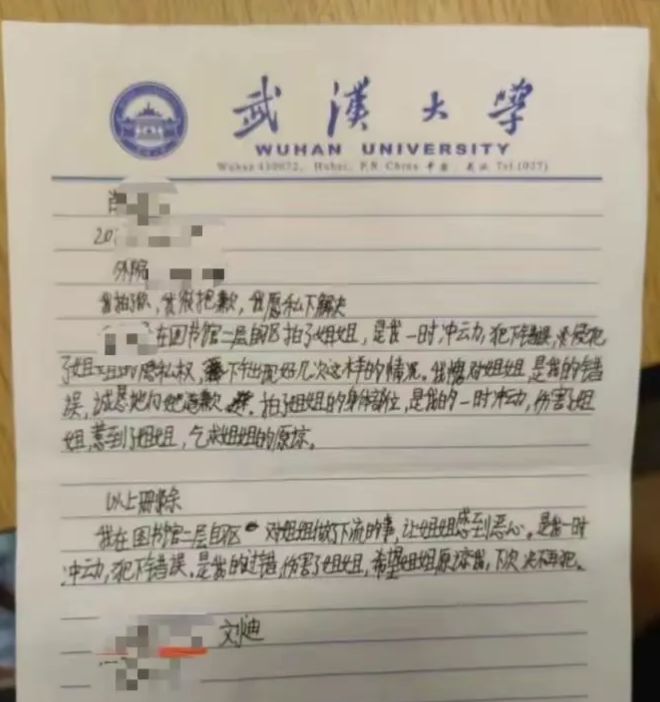 武漢大學
WUHAN UNIVERSITY
Wuhan 430072, Hubei, P.R.China 中国·武汉 Tel.(027)
肖
20
外院
我拍了你,我很抱歉,我愿私下解决
在图书馆二层自习区拍了姐姐,是我一时冲动,犯下错误,来侵犯
了姐姐的隐私权,下午出现好几次这样的情况。我愧对姐姐,是我的错
误,诚恳地向她道歉 拍了姐姐的身体部位,是我的一时冲动,伤害了姐
姐,惹到了姐姐,乞求姐姐的原谅。
以上删除
我在图书馆二层自区 对姐姐做了下流的事,让姐姐感到恶心。是我一时
冲动,犯下错误。是我的过错,伤害了姐姐,希望姐姐原谅我,下次决不再犯。
刘迪